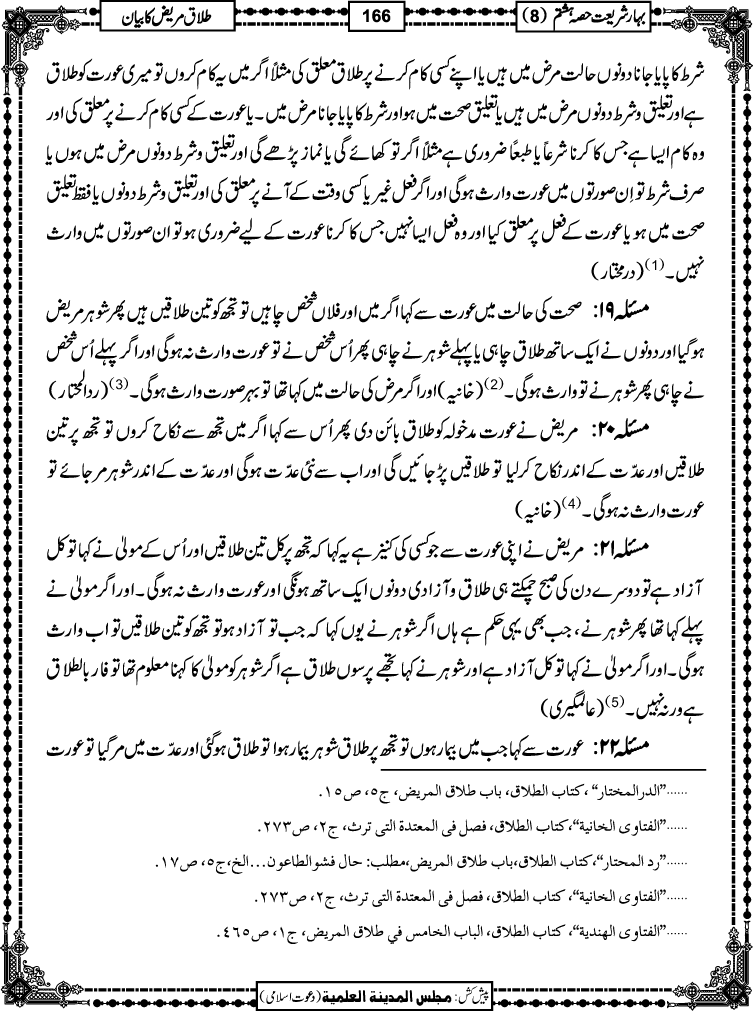 بہارِ شریعت حصہ ہشتم (8)
166
طلاق مریض کا بیان
شرط کا پایا جانا دونوں حالت مرض میں ہیں یا اپنے کسی کام کرنے پر طلاق معلق کی مثلاً اگر میں یہ کام کروں تو میری عورت کو طلاق
ہے اور تعلیق و شرط دونوں مرض میں ہیں یا تعلیق صحت میں ہو اور شرط کا پایا جانا مرض میں۔ یا عورت کے کسی کام کرنے پر معلق کی اور
وہ کام ایسا ہے جس کا کرنا شرعاً یا طبعاً ضروری ہے مثلاً اگر تو کھائے گی یا نماز پڑھے گی اور تعلیق و شرط دونوں مرض میں ہوں یا
صرف شرط تو اِن صورتوں میں عورت وارث ہوگی اور اگر فعل غیر یا کسی وقت کے آنے پر معلق کی اور تعلیق و شرط دونوں یا فقط تعلیق
صحت میں ہو یا عورت کے فعل پر معلق کیا اور وہ فعل ایسا نہیں جس کا کرنا عورت کے لیے ضروری ہو تو ان صورتوں میں وارث
نہیں۔(1) (درمختار)
مسئلہ ۱۹: صحت کی حالت میں عورت سے کہا اگر میں اور فلاں شخص چاہیں تو تجھ کو تین طلاقیں ہیں پھر شوہر مریض
ہو گیا اور دونوں نے ایک ساتھ طلاق چاہی یا پہلے شوہر نے چاہی پھر اُس شخص نے تو عورت وارث نہ ہوگی اور اگر پہلے اُس شخص
نے چاہی پھر شوہر نے تو وارث ہوگی۔(2) (خانیہ) اور اگر مرض کی حالت میں کہا تھا تو بہر صورت وارث ہوگی۔(3) (ردالمحتار)
مسئلہ ۲۰: مریض نے عورت مدخولہ کو طلاق بائن دی پھر اُس سے کہا اگر میں تجھ سے نکاح کروں تو تجھ پر تین
طلاقیں اور عدّت کے اندر نکاح کر لیا تو طلاقیں پڑ جائیں گی اور اب سے نئی عدّت ہوگی اور عدّت کے اندر شوہر مر جائے تو
عورت وارث نہ ہوگی۔(4) (خانیہ)
مسئلہ ۲۱: مریض نے اپنی عورت سے جو کسی کی کنیز ہے یہ کہا کہ تجھ پر کل تین طلاقیں اور اُس کے مولیٰ نے کہا تو کل
آزاد ہے تو دوسرے دن کی صبح چمکتے ہی طلاق و آزادی دونوں ایک ساتھ ہونگی اور عورت وارث نہ ہوگی۔ اور اگر مولیٰ نے
پہلے کہا تھا پھر شوہر نے، جب بھی یہی حکم ہے ہاں اگر شوہر نے یوں کہا کہ جب تو آزاد ہو تو تجھ کو تین طلاقیں تو اب وارث
ہوگی۔ اور اگر مولیٰ نے کہا تو کل آزاد ہے اور شوہر نے کہا تجھے پرسوں طلاق ہے اگر شوہر کو مولیٰ کا کہنا معلوم تھا تو فار بالطلاق
ہے ورنہ نہیں۔(5) (عالمگیری)
مسئلہ ۲۲: عورت سے کہا جب میں بیمار ہوں تو تجھ پر طلاق شوہر بیمار ہوا تو طلاق ہوگئی اور عدّت میں مر گیا تو عورت
......”الدرالمختار“ ،کتاب الطلاق، باب طلاق المریض، ج٥، ص١٥.
......”الفتاوی الخانیة“،کتاب الطلاق، فصل فی المعتدة التی ترث، ج٢، ص٢٧٣.
......”رد المحتار“،کتاب الطلاق،باب طلاق المریض،مطلب: حال فشوالطاعون...الخ،ج٥، ص١٧.
......”الفتاوی الخانیة“، کتاب الطلاق، فصل فی المعتدة التی ترث، ج٢، ص٢٧٣.
......”الفتاوی الهندیة“، کتاب الطلاق، الباب الخامس في طلاق المریض، ج١، ص٤٦٥.
پیش کش: مجلس المدینة العلمیة (دعوت اسلامی)